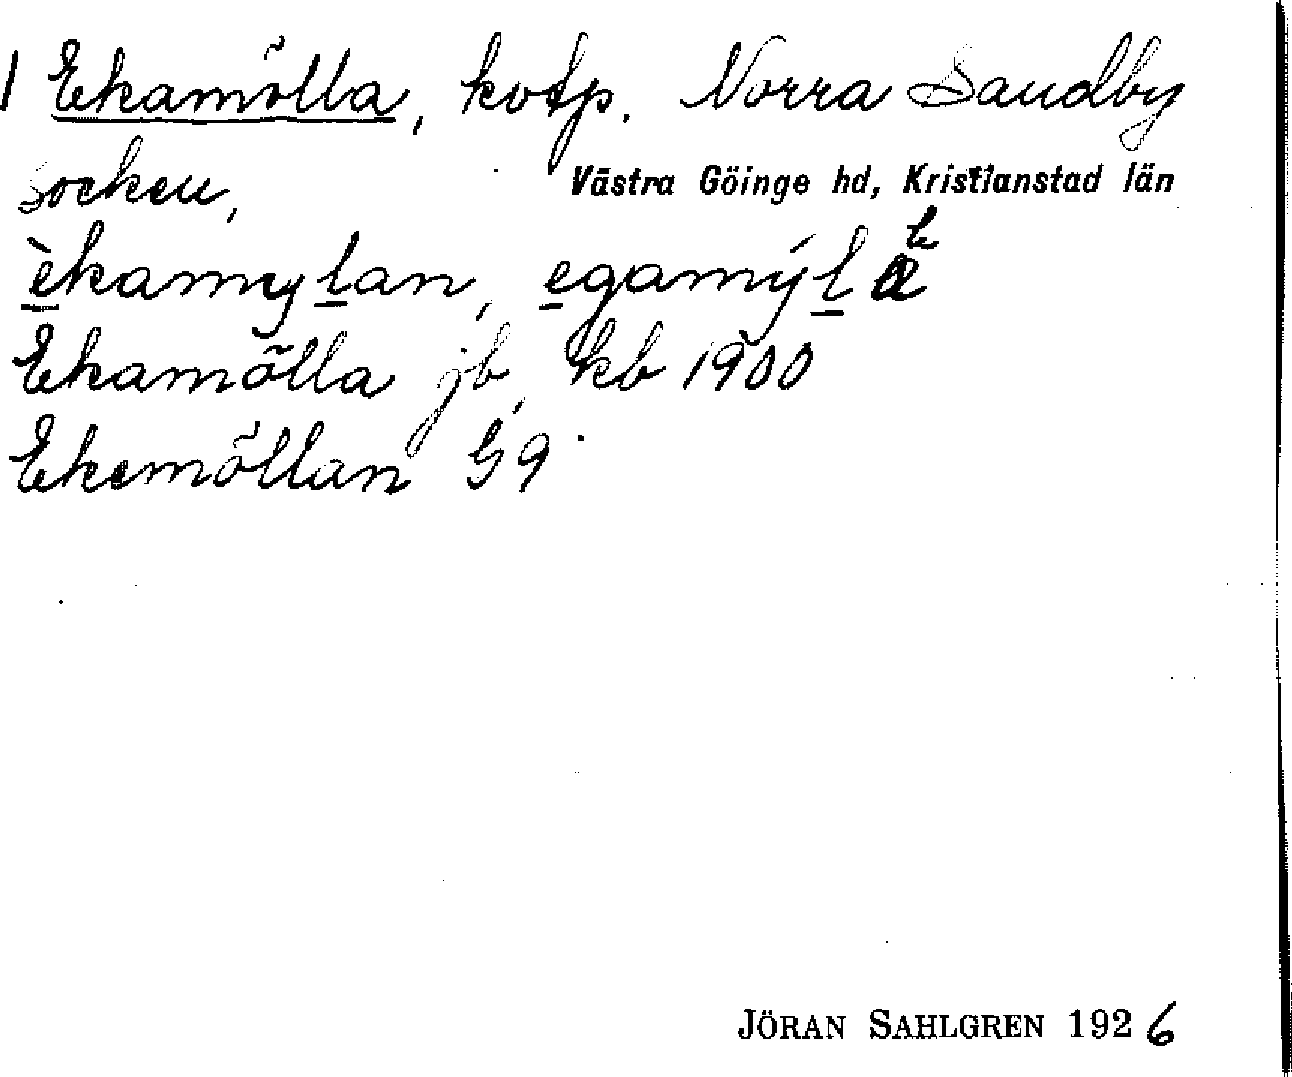 1 Ekamölla, kvdp. Norra Sandby
socken, Västra Göinge hd, Kristianstad län
èkamylan, egamýla
Ekamölla jb, kb 1900
Ekemöllan G9
JÖRAN SAHLGREN 1926